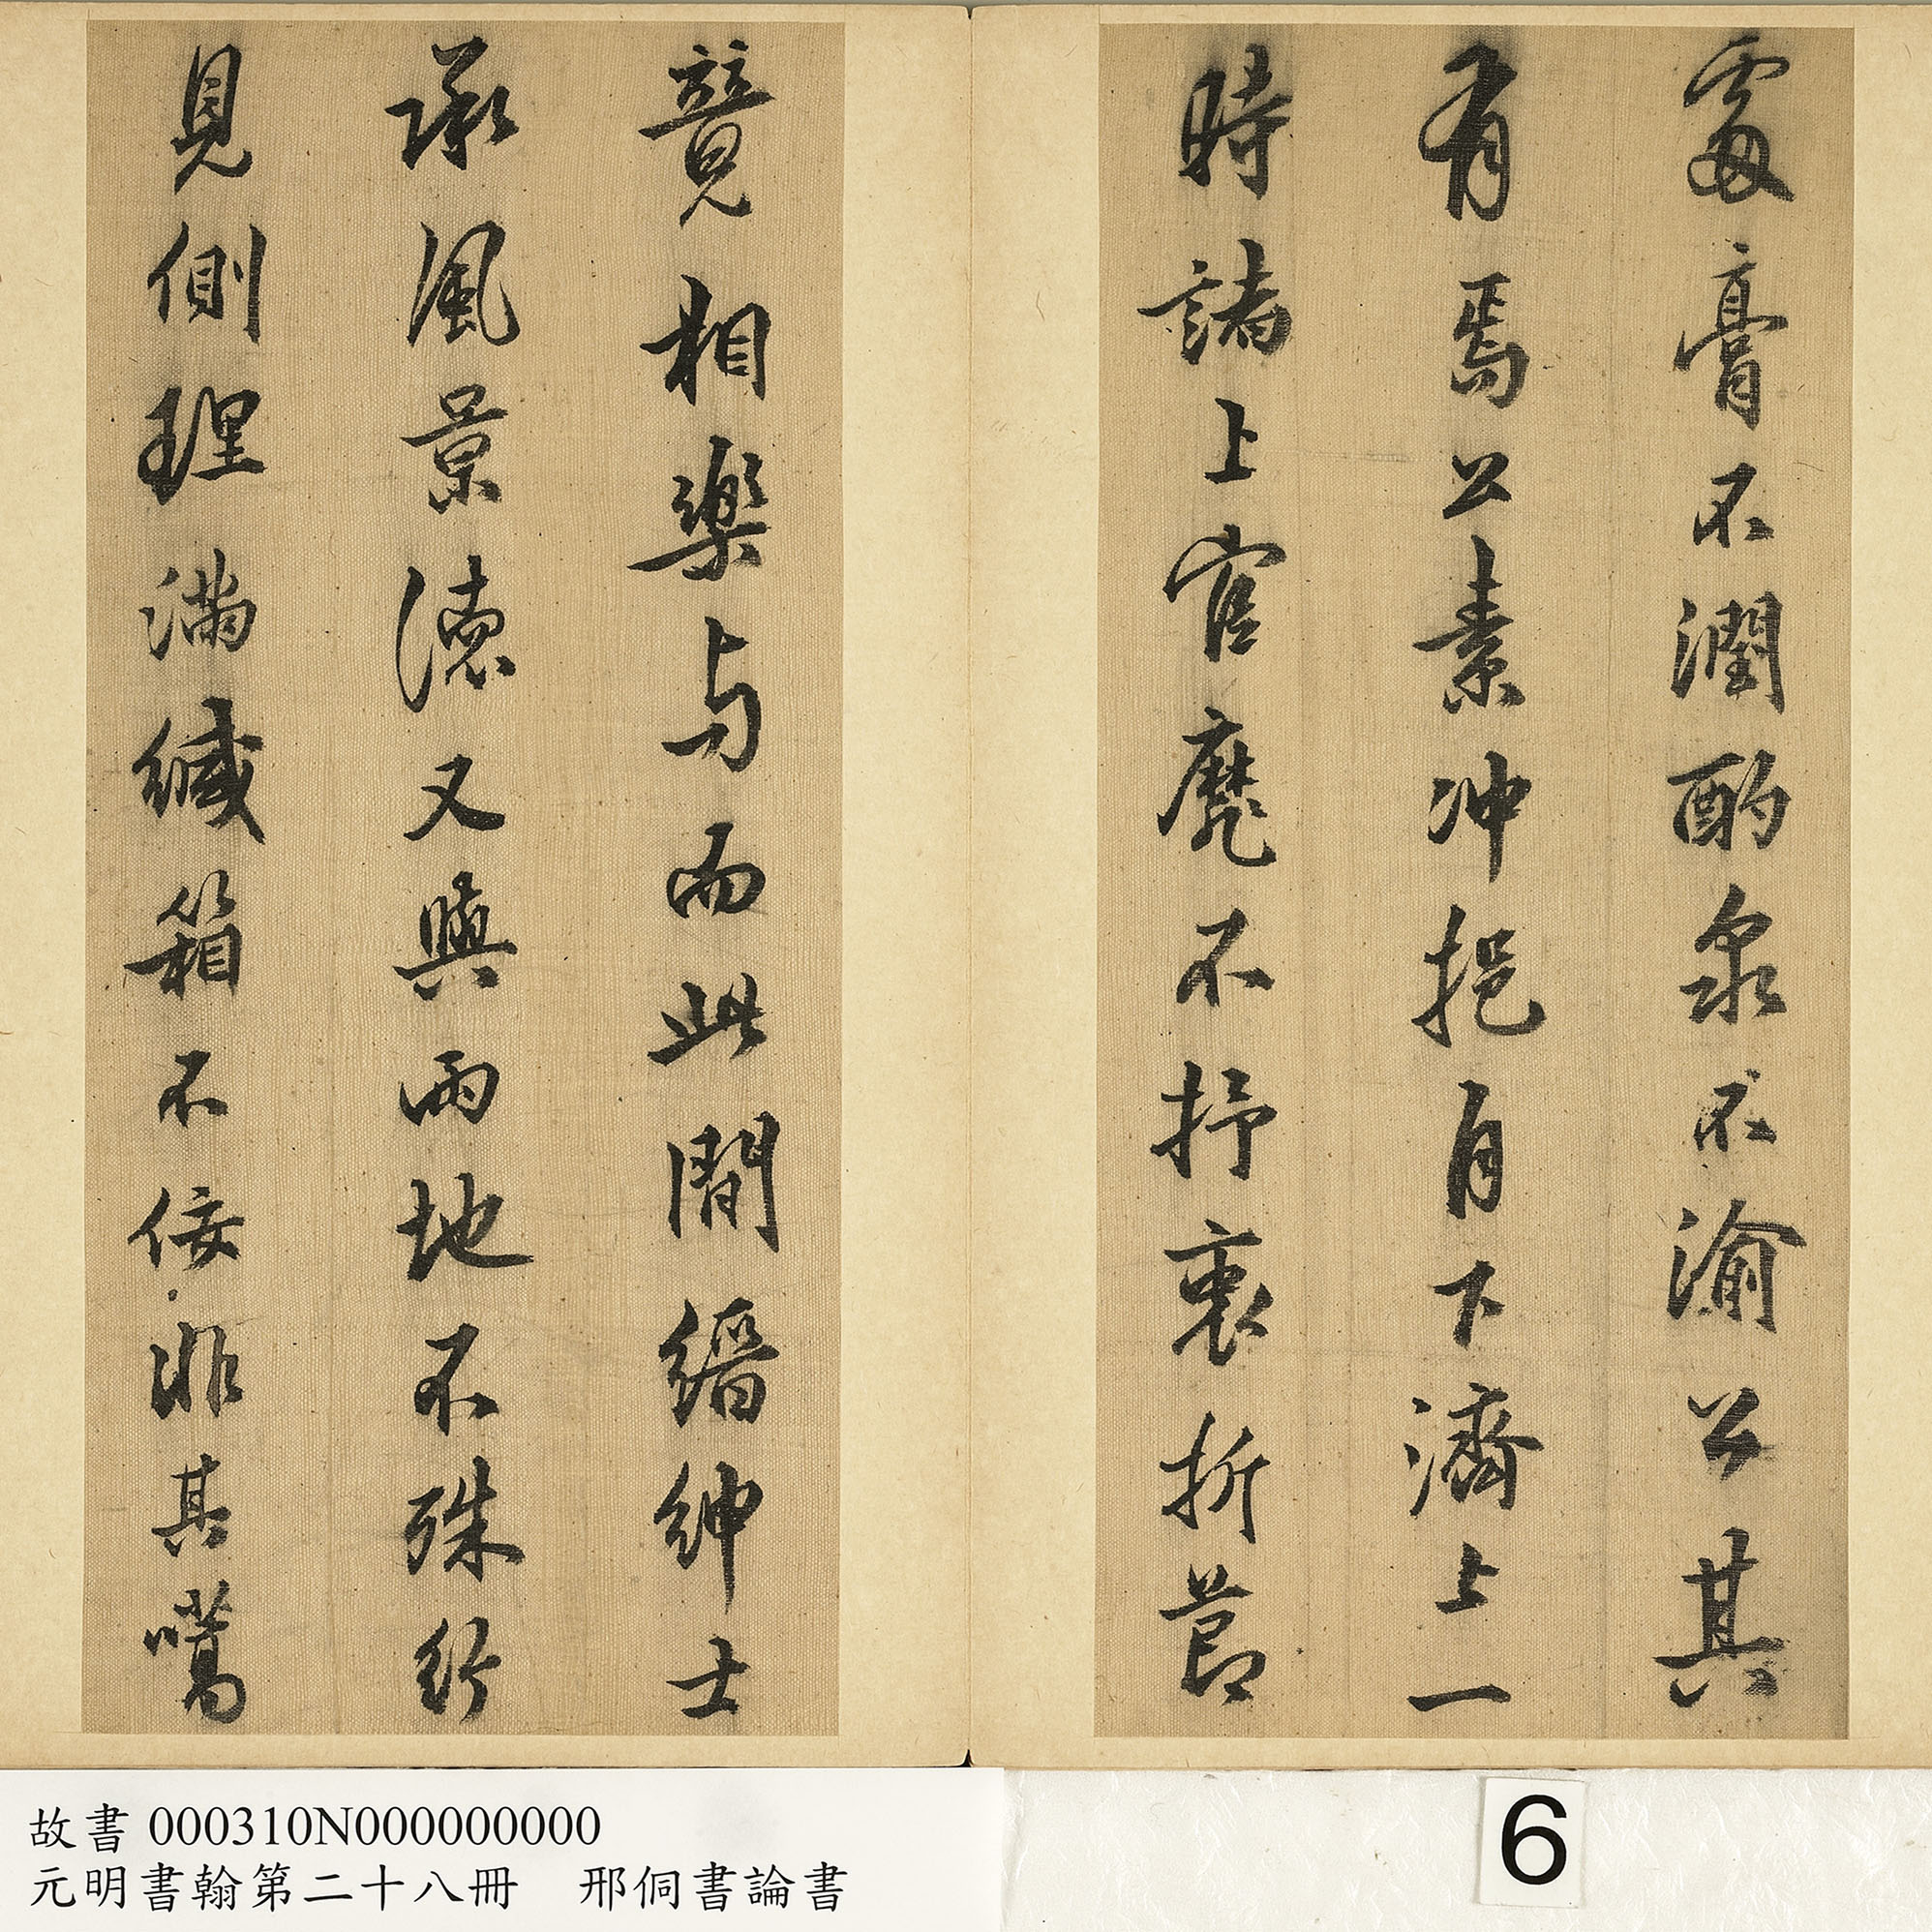 處膏不潤酌泉不渝公其
有焉公素冲挹自下濟上一
時諸上官靡不抒衷折節
竟相樂与而此間縉紳士
承風景德又與兩地不殊行
見側理滿緘箱不佞非其
故書 000310N000000000
元明書翰第二十八冊 邢侗書論書
6